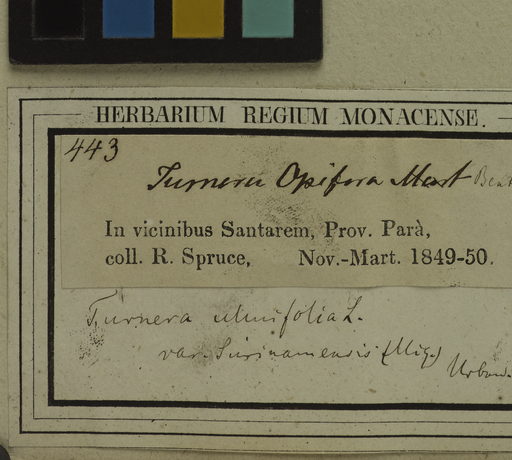 HERBARIUM REGIUM MONACENSE.
443
Turnera Opifera Mart Bent
In vicinibus Santarem, Prov. Parà,
coll. R. Spruce, Nov.-Mart. 1849-50.
Turnera ulmifolia L.
var. Surinamensis (Miq.)
Urban.